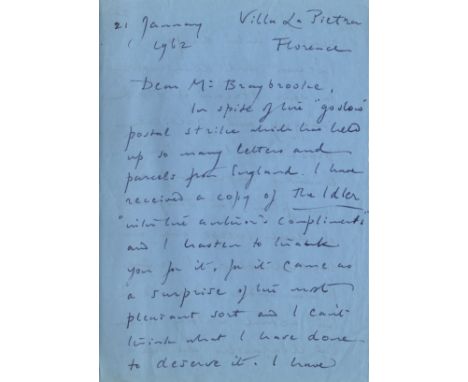 21 January Villa La Pietra
1962 Florence
Dear Mr Braybrooke,
In spite of the "goslow"
postal strike which has held
up so many letters and
parcels from England, I have
received a copy of The Idler
"with the author's compliments"
and I hasten to thank
you for it, for it came as
a surprise of the most
pleasant sort and I can't
think what I have done
to deserve it. I have